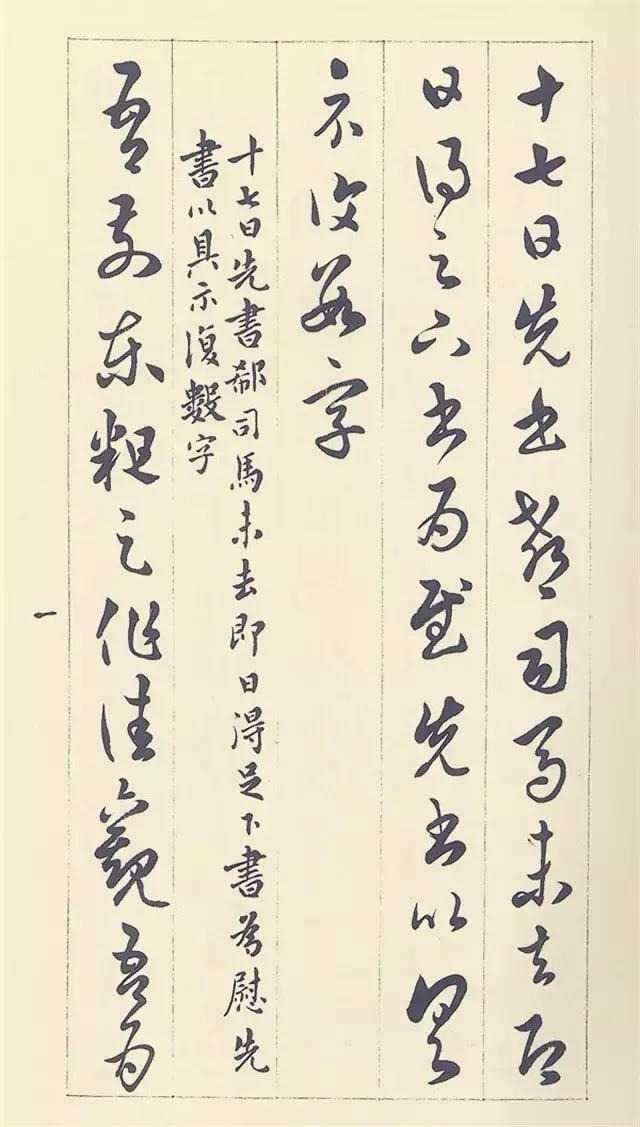 十七日先书郗司马未去即
日得足下书为慰先书以具
示复数字
十七日先書郗司馬未去即日得足下書為慰先
書以具示復數字
吾前东粗足作佳观吾为
一